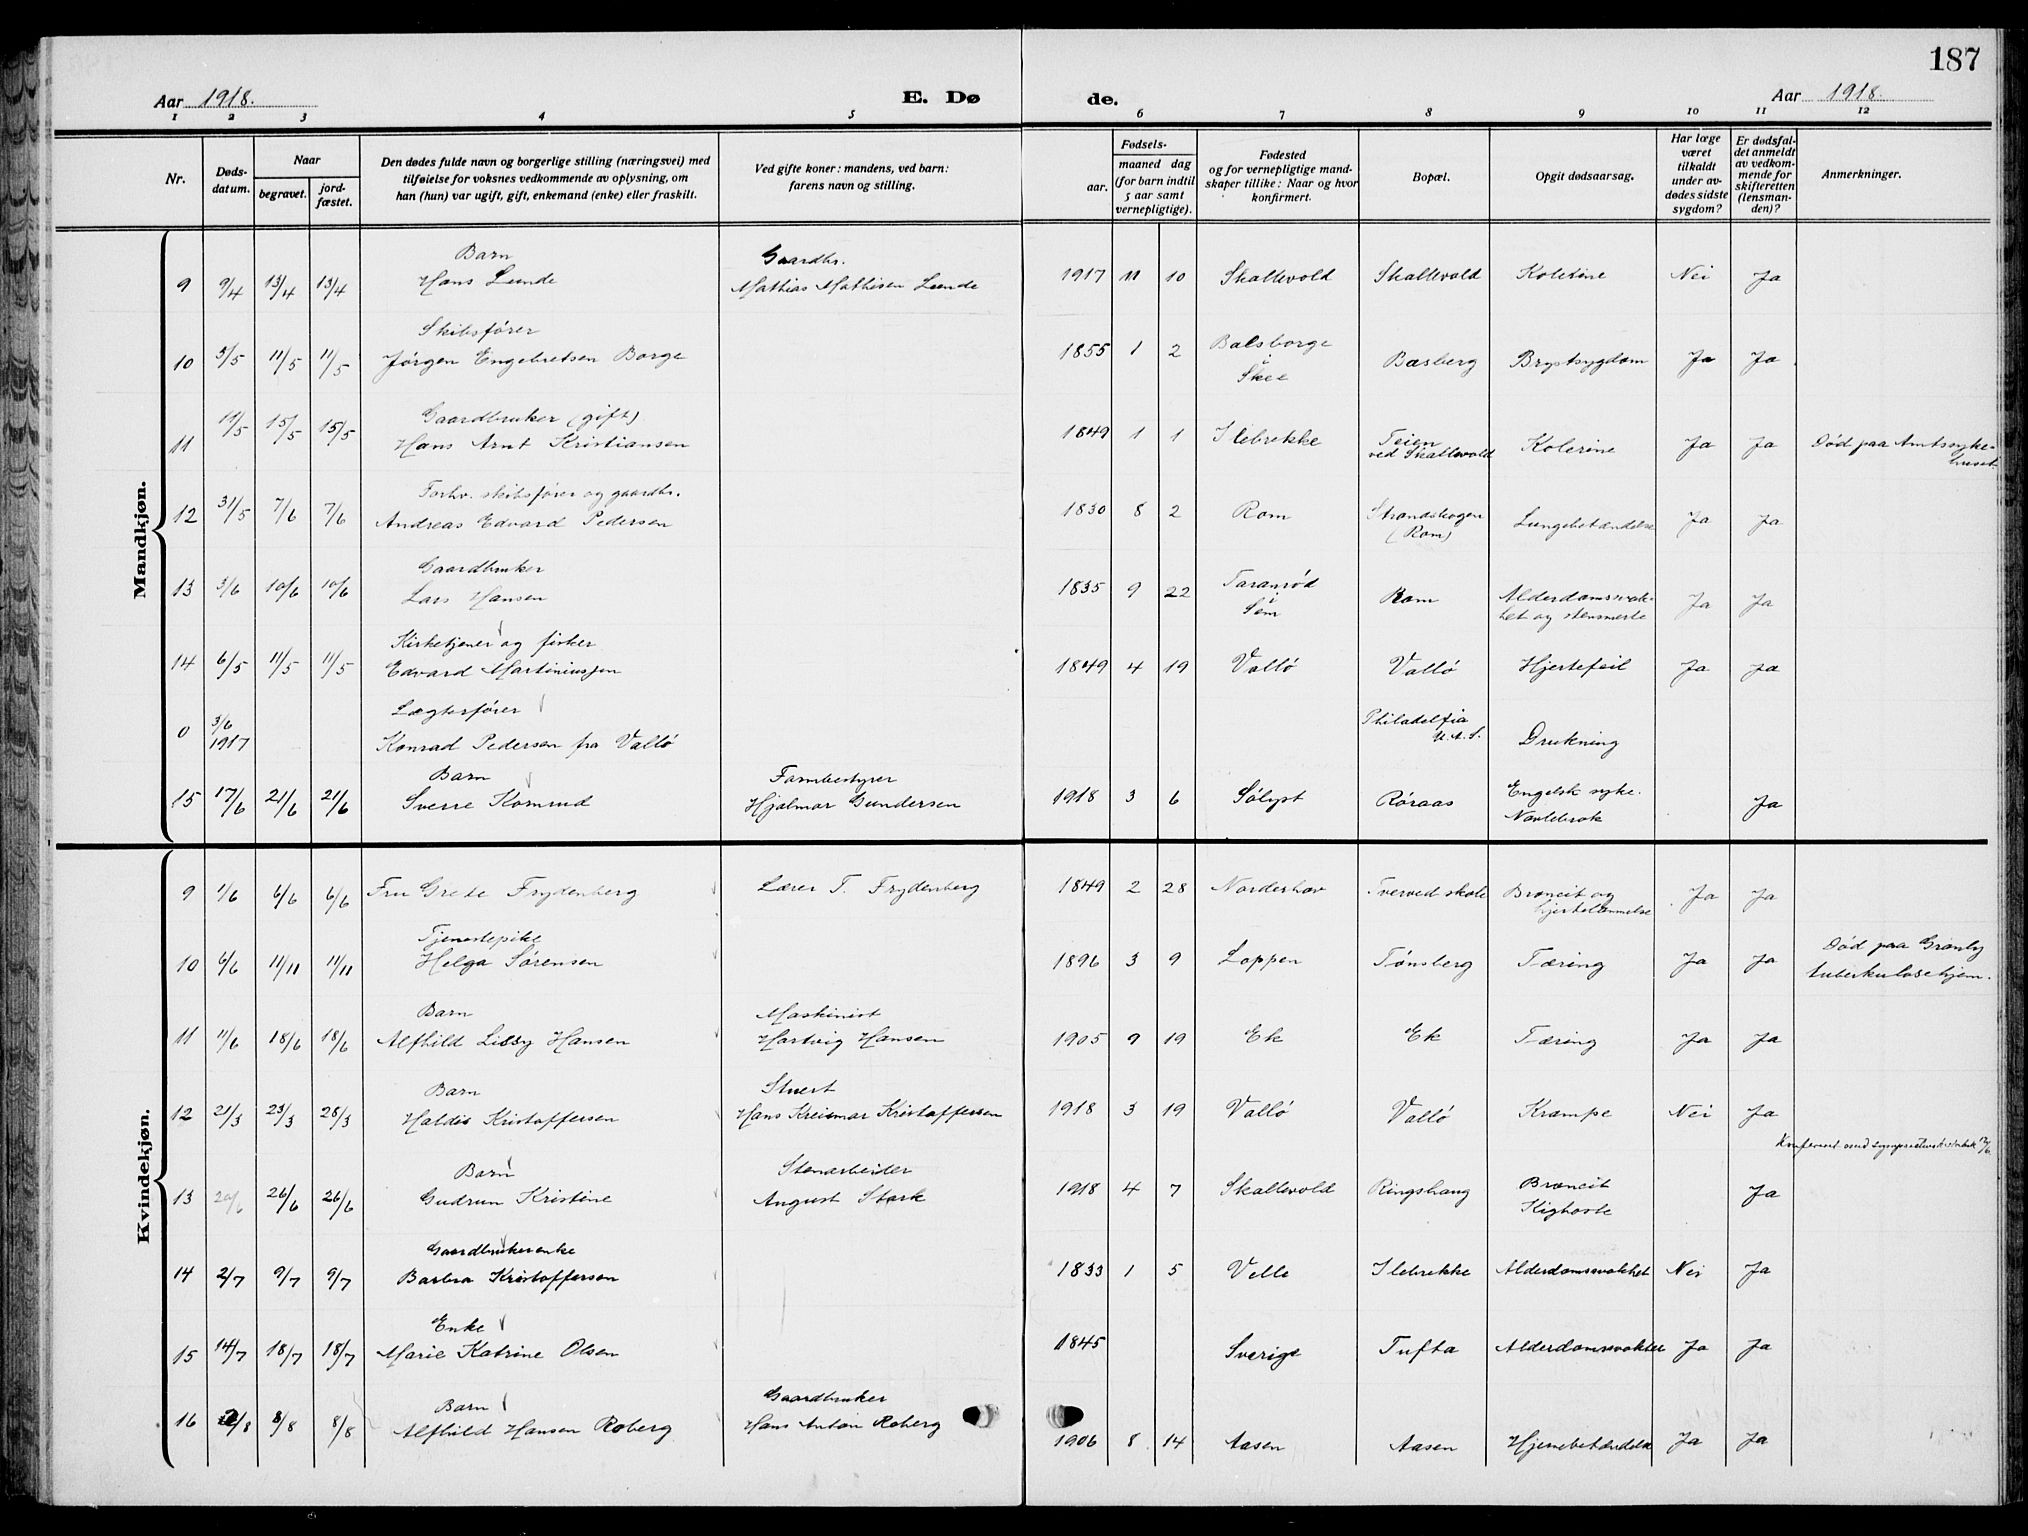 187
Aar 1918. E. Dø de. Aar 1918.
1 2 3 4 5 6 7 8 9 10 11 12
Nr. | Døds-datum. | Naar begravet. | jord-fæstet. | Den dødes fulde navn og borgerlige stilling (næringsvei) med tilføielse for voksnes vedkommende av oplysning, om han (hun) var ugift, gift, enkemand (enke) eller fraskilt. | Ved gifte koner: mandens, ved barn: farens navn og stilling. | Fødsels- aar. | maaned dag (for barn indtil 5 aar samt vernepligtige). | Fødested og for vernepligtige mandskaper tillike: Naar og hvor konfirmert. | Bopæl. | Opgit dødsaarsag. | Har læge været tilkaldt under avdødes sidste sygdom? | Er dødsfaldet anmeldt av vedkommende for skifteretten (lensmanden)? | Anmerkninger.
Mandkjøn.
9 | 9/4 | 13/4 | 13/4 | Barn Hans Lunde | Gaardbr. Mathias Mathisen Lunde | 1917 | 11 | 10 | Skallevold | Skallevold | Kolerine | Nei | Ja
10 | 3/5 | 11/5 | 11/5 | Skibsfører Jørgen Engebretsen Borge | 1855 | 1 | 2 | Balsborge i Skee | Basberg | Brystsygdom | Ja | Ja
11 | 11/5 | 15/5 | 15/5 | Gaardbruker (gift) Hans Arnt Kristiansen | 1849 | 1 | 1 | Ilebrekke | Teien ved Skallevold | Kolerine | Ja | Ja | Død paa Amtssykehuset
12 | 31/5 | 7/6 | 7/6 | Forhv. skibsfører og gaardbr. Andreas Edvard Pedersen | 1830 | 8 | 2 | Rom | Strandskogen (Rom) | Lungebetændelse | Ja | Ja
13 | 3/6 | 10/6 | 10/6 | Gaardbruker Lars Hansen | 1835 | 9 | 22 | Taranrød i Sem | Rom | Alderdomssvakhet og stensmerte | Ja | Ja
14 | 6/5 | 11/5 | 11/5 | Kirketjener og fisker Edvard Martiniussen | 1849 | 4 | 19 | Vallø | Vallø | Hjertefeil | Ja | Ja
0 | 3/6 1917 | Lægterfører Konrad Pedersen fra Vallø | Philadelfia U.A.S. | Drukning
15 | 17/6 | 21/6 | 21/6 | Barn Sverre Komrud | Farmbestyrer Hjalmar Gundersen | 1918 | 3 | 6 | Sølyst | Røraas | Engelsk syke. Navlebrok | Ja
Kvindekjøn.
9 | 1/6 | 6/6 | 6/6 | Fru Grete Frydenberg | Lærer T. Frydenberg | 1849 | 2 | 28 | Norderhov | Tverved skole | Broncit og hjertelammelse | Ja | Ja
10 | 6/6 | 11/11 | 11/11 | Tjenestepike Helga Sørensen | 1896 | 3 | 9 | Loppen | Tønsberg | Tæring | Ja | Ja | Død paa Granly tuberkulosehjem.
11 | 11/6 | 18/6 | 18/6 | Barn Alfhild Lissy Hansen | Maskinist Hartvig Hansen | 1905 | 9 | 19 | Ek | Ek | Tæring | Ja | Ja
12 | 21/3 | 23/3 | 28/3 | Barn Haldis Kristoffersen | Stuert Hans Kreismar Kristoffersen | 1918 | 3 | 19 | Vallø | Vallø | Krampe | Nei | Ja
13 | 20/6 | 26/6 | 26/6 | Barn Gudrun Kristine | Stenarbeider August Stark | 1918 | 4 | 7 | Skallevold | Ringshaug | Broncit Kighoste | Ja
14 | 2/7 | 9/7 | 9/7 | Gaardbrukerenke Barbra Kristoffersen | 1833 | 1 | 5 | Velle | Ilebrekke | Alderdomssvakhet | Nei | Ja
15 | 14/7 | 18/7 | 18/7 | Enke Marie Katrine Olsen | 1845 | Sverige | Tufta | Alderdomssvakhet | Ja | Ja
16 | 2/8 | 8/8 | 8/8 | Barn Alfhild Hansen Roberg | Gaardbruker Hans Anton Roberg | 1906 | 8 | 14 | Aasen | Aasen | Hjernebetændelse | Ja | Ja